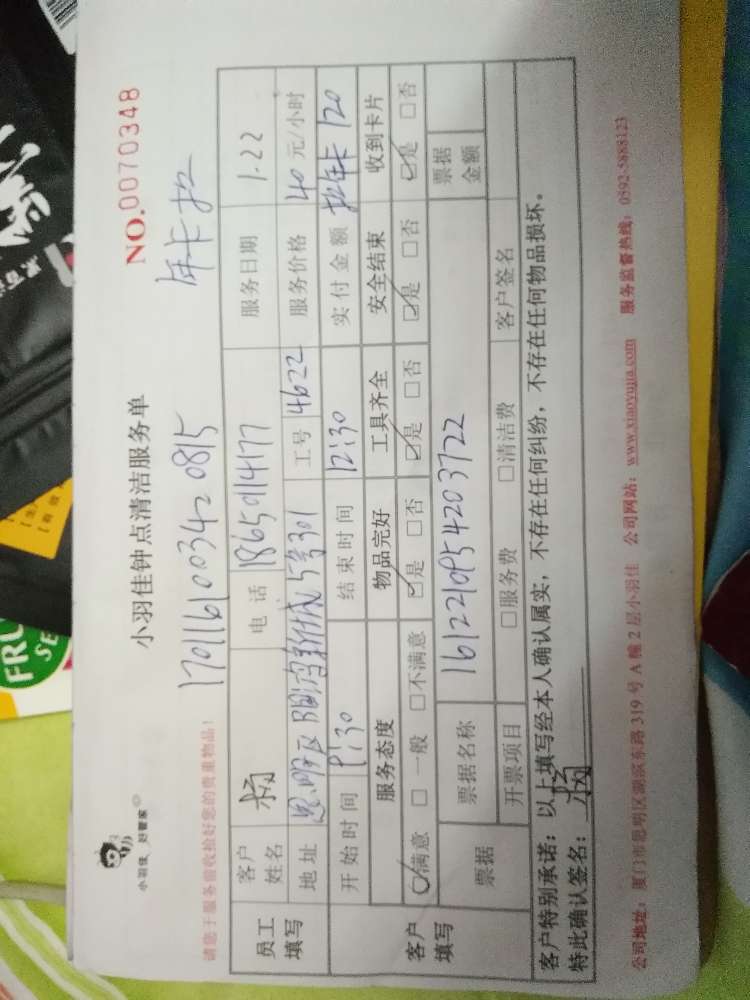 小羽佳 好管家
小羽佳钟点清洁服务单
NO.0070348
请您于服务前收捡好您的贵重物品！
1701161003420815 年卡扣
员工填写 客户姓名 电话 18650114177 服务日期 1.22
地址 思明区 新城5号301 工号 4622 服务价格 40元/小时
开始时间 9:30 结束时间 12:30 实付金额 扣年卡 120
客户填写 服务态度 物品完好 工具齐全 安全结束 收到卡片
☑满意 □一般 □不满意 ☑是 □否 ☑是 □否 ☑是 □否 ☑是 □否
票据 票据名称 1612210954203722 票据金额
开票项目 □服务费 □清洁费 客户签名
客户特别承诺：以上填写经本人确认属实，不存在任何纠纷，不存在任何物品损坏。
特此确认签名：
公司地址：厦门市思明区湖滨东路319号A幢2层小羽佳 公司网站：www.xiaoyujia.com 服务监督热线：0592-5888123
FRU
SE